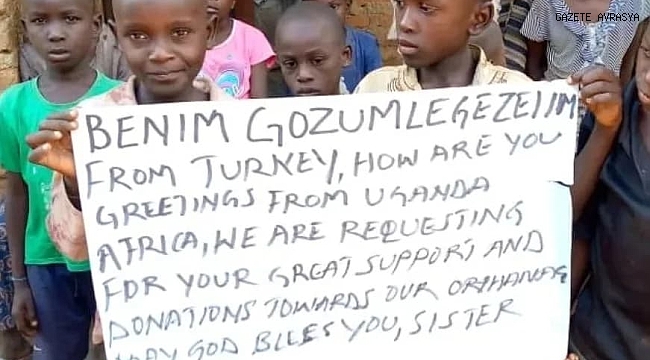 GAZETE AVRASYA
BENIM GOZUMLEGEZELIM
FROM TURKEY, HOW ARE YOU
GREETINGS FROM UGANDA
AFRICA, WE ARE REQUESTING
FOR YOUR GREAT SUPPORT AND
DONATIONS TOWARDS OUR ORPHANAGE
MAY GOD BLLES YOU, SISTER